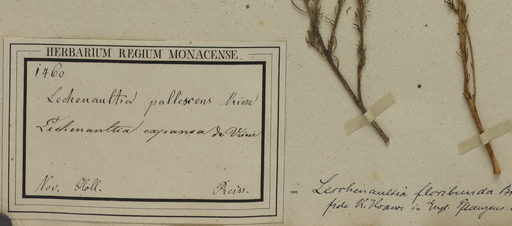 HERBARIUM REGIUM MONACENSE.
1460
Lechenaultia pallescens Vriese
Lechenaultia expansa de Vriese
Nov. Holl. Preiss.
Leschenaultia floribunda
fide K. Krause in Engl. Pflanzenr.